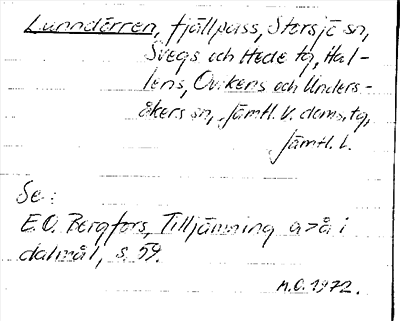 Lunndörren, fjällpass, Storsjö sn,
Svegs och Hede tg, Hal-
lens, Ovikens och Unders-
åkers sn, Jämtl. V. doms. tg,
Jämtl. L.
Se:
E.O. Bergfors, Tilljämning a>å i
dalmål, s. 59.
M.O. 1972.